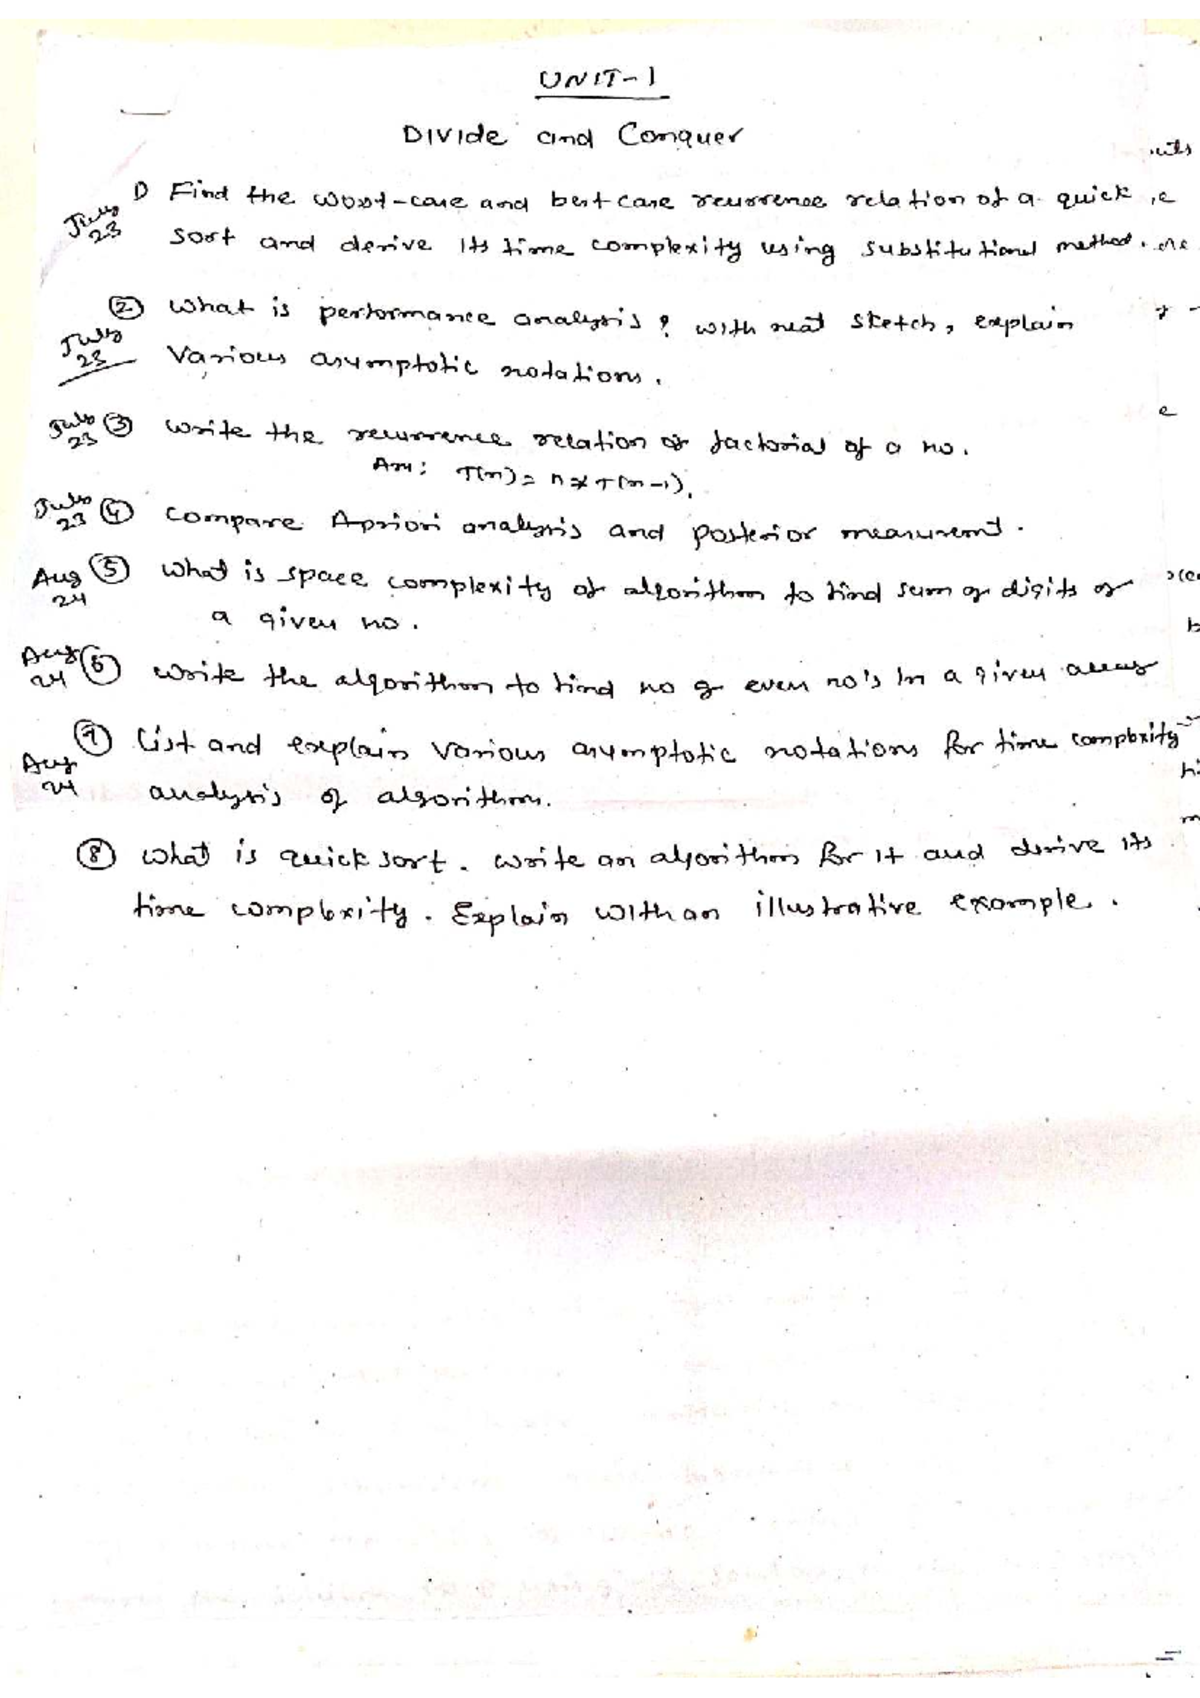 UNIT-1
Divide and Conquer
July 23 1) Find the worst-case and best case recurrence relation of a quick
sort and derive its time complexity using substitutional method.
July 23 (2) What is performance analysis? with neat sketch, explain
various asymptotic notations.
July 23 (3) Write the recurrence relation of factorial of a no.
Ans: T(n) = n * T(n-1).
July 23 (4) Compare Apriori analysis and posterior measurement.
Aug 24 (5) What is space complexity of algorithm to find sum of digits of
a given no.
Aug 24 (6) Write the algorithm to find no of even no's in a given array
Aug 24 (7) List and explain various asymptotic notations for time complexity
analysis of algorithm.
(8) What is quick sort. Write an algorithm for it and derive its
time complexity. Explain with an illustrative example.